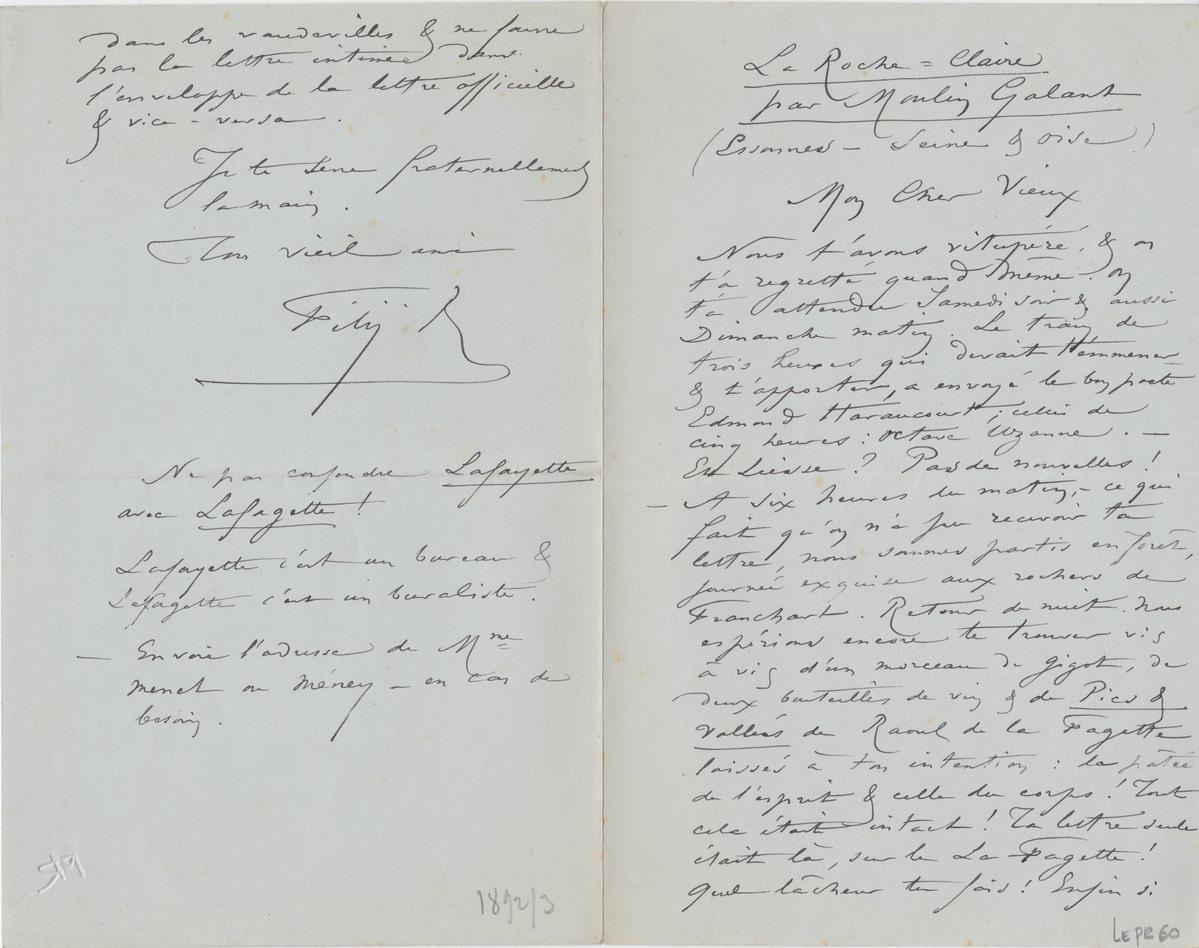 dans les vaudevilles & ne fourre
pas la lettre intime dans
l'enveloppe de la lettre officielle
& vice-versa.
Je te serre fraternellement
la main.
Ton vieil ami
Ne pas confondre Lafayette
avec Lafagette !
Lafayette c'est un bureau &
Lafagette c'est un buraliste.
— Envoie l'adresse de Mme
menet ou Méney — en cas de
besoin.
1892/3
La Roche = Claire
par Moulin Galant
(Essonnes — Seine & Oise)
Mon Cher Vieux
Nous t'avons vitupéré, & on
t'a regretté quand même. on
t'a attendu Samedi soir & aussi
Dimanche matin. Le train de
trois heures qui devait t'emmener
& t'apporter, a envoyé le bon poète
Edmond Haraucourt ; celui de
cinq heures : Octave Uzanne. —
Et Liesse ? Pas de nouvelles !
— A six heures du matin, — ce qui
fait qu'on n'a pu recevoir ta
lettre, nous sommes partis en forêt,
journée exquise aux rochers de
Franchart. Retour de nuit. Nous
espérions encore te trouver vis
à vis d'un morceau de gigot, de
deux bouteilles de vin & de Pics &
Vallées de Raoul de la Fagette
laissés à ton intention : la pâtée
de l'esprit & celle du corps ! Tout
cela était intact ! Ta lettre seule
était là, sur le La Fagette !
Quel lâcheur tu fais ! Enfin si
LEPR 60